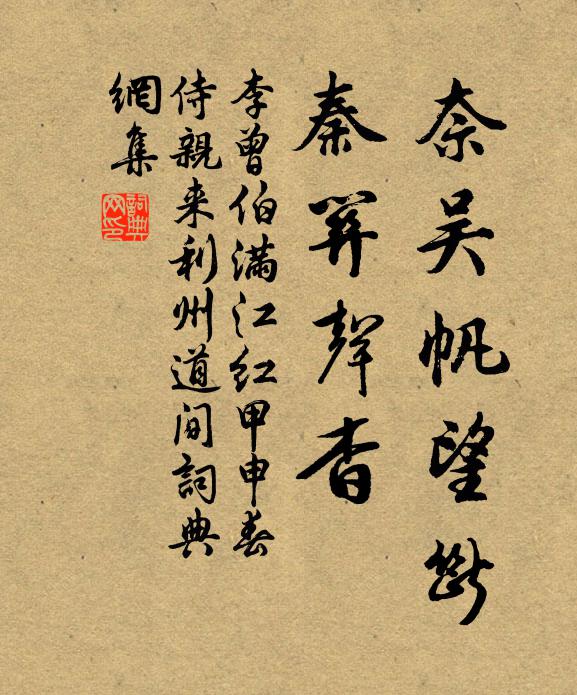 奈吴帆望断
秦筝聲杳
李曾伯满江红甲申春
侍親来利州道间詞典
網集
詞典网印